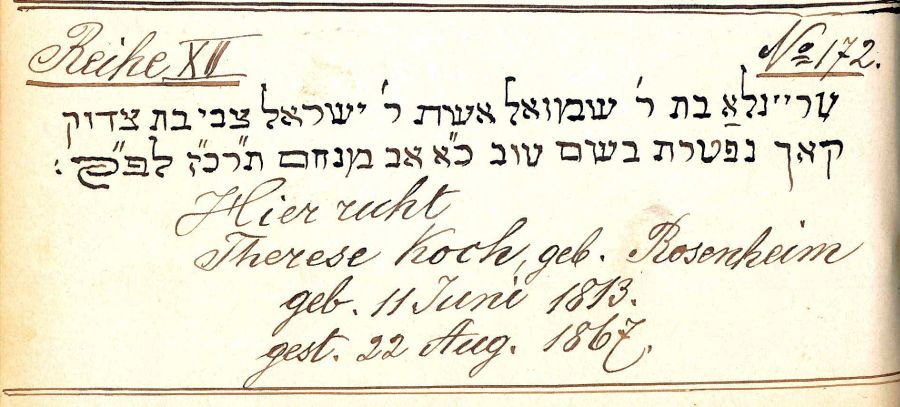 Reihe XII No 172.
טריינלא בת ר' שמואל אשת ר' ישראל צבי בת צדוק
קאך נפטרת בשום טוב כ"א אב מנחם תרכ"ז לפ"ק:
Hier ruht
Therese Koch, geb. Rosenheim
geb. 11 Juni 1813.
gest. 22 Aug. 1867.